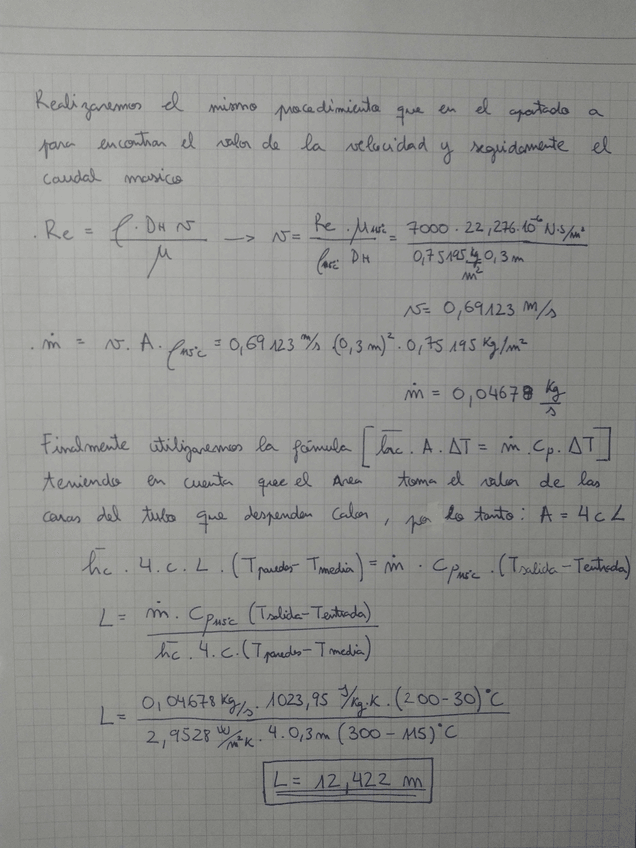 Realizaremos el mismo procedimiento que en el apartado a
para encontrar el valor de la velocidad y seguidamente el
caudal masico
. Re = ρ · DH v / μ → v = Re · μ115ºC / ρ115ºC DH = 7000 · 22,276·10⁻⁶ N·s/m² / 0,75195 kg/m² 0,3 m
v = 0,69123 m/s
. ṁ = v. A. ρ115ºC = 0,69123 m/s (0,3 m)² · 0,75195 Kg/m²
ṁ = 0,04678 Kg/s
Finalmente utilizaremos la fórmula [h̄c . A. ΔT = ṁ. Cp. ΔT]
teniendo en cuenta que el Area toma el valor de las
caras del tubo que despenden Calor, por lo tanto: A = 4 c L
h̄c . 4. c. L . (Tparedes - Tmedia) = ṁ · Cp115ºC . (Tsalida - Tentrada)
L = ṁ. Cp115ºC (Tsalida - Tentrada) / h̄c. 4. c. (Tparedes - Tmedia)
L = 0,04678 Kg/s . 1023,95 J/Kg·K . (200-30)ºC / 2,9528 W/m²K . 4. 0,3m (300 - 115)ºC
L = 12,422 m